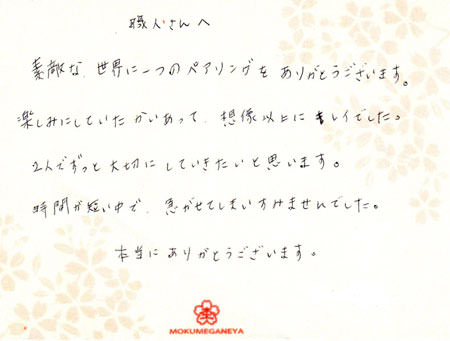 職人さんへ
素敵な、世界に一つのペアリングをありがとうございます。
楽しみにしていたかいあって、想像以上にキレイでした。
2人でずっと大切にしていきたいと思います。
時間が短い中で、急がせてしまいすみませんでした。
本当にありがとうございます。
MOKUMEGANEYA